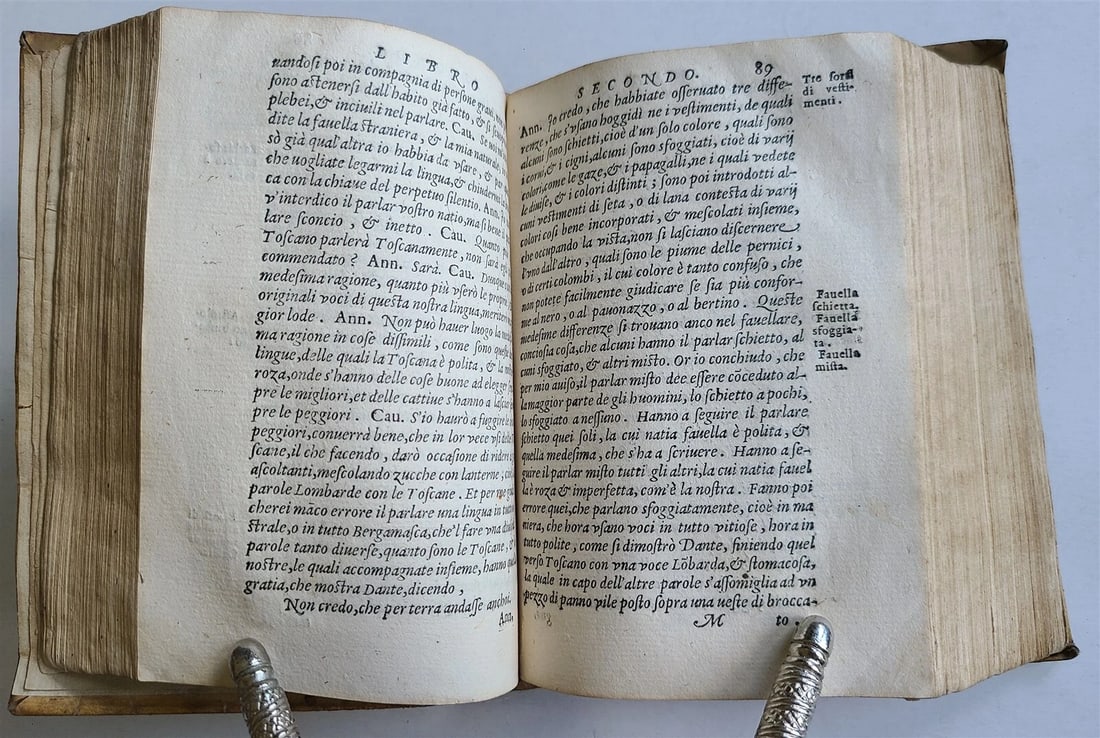 LIBRO
nandosi poi in compagnia di persone graui,
sono astenersi dall'habito già fatto, & si
plebei, & inciuili nel parlare. Cau. Se
dite la fauella straniera, & la mia naturale,
sò già qual'altra io habbia da vsare, & par
che uogliate legarmi la lingua, & chiudermi
ca con la chiaue del perpetuo silentio. Ann.
v'interdico il parlar vostro natio, ma si bene
lare sconcio, & inetto. Cau. Quanto
Toscano parlerà Toscanamente, non sarà
commendato? Ann. Sarà. Cau. Dunque
medesima ragione, quanto più vserò le proprie,
originali voci di questa nostra lingua,
gior lode. Ann. Non può hauer luogo la
ma ragione in cose dissimili, come sono queste
lingue, delle quali la Toscana è polita, & la
roza, onde s'hanno delle cose buone ad elegger
pre le migliori, et delle cattiue s'hanno a lasciar
pre le peggiori. Cau. S'io haurò a fuggire le
peggiori, conuerrà bene, che in lor vece vsi
scane, il che facendo, darò occasione di ridere a
ascoltanti, mescolando zucche con lanterne,
parole Lombarde con le Toscane. Et per
cherei māco errore il parlare una lingua in tutto
strale, o in tutto Bergamasca, che'l fare vna
parole tanto diuerse, quanto sono le Toscane, &
nostre, le quali accompagnate insieme, hanno
gratia, che mostra Dante, dicendo,
Non credo, che per terra andasse anchoi.
Ann.
SECONDO. 89
Ann. Io credo, che habbiate osseruato tre diffe-
renze, che s'vsano hoggidì ne i vestimenti, de quali
alcuni sono schietti, cioè d'un solo colore, quali sono
i corui, & i cigni, alcuni sono sfoggiati, cioè di varij
colori, come le gaze, & i papagalli, ne i quali vedete
le diuise, & i colori distinti; sono poi introdotti al-
cuni vestimenti di seta, o di lana contesta di varij
colori cosi bene incorporati, & mescolati insieme,
che occupando la vista, non si lasciano discernere
l'vno dall'altro, quali sono le piume delle pernici,
o di certi colombi, il cui colore è tanto confuso, che
non potete facilmente giudicare se sia più confor-
me al nero, o al pauonazzo, o al bertino. Queste
medesime differenze si trouano anco nel fauellare,
conciosia cosa, che alcuni hanno il parlar schietto, al
cuni sfoggiato, & altri misto. Or io conchiudo, che
per mio auiso, il parlar misto dee essere cōceduto al-
la maggior parte de gli huomini, lo schietto a pochi,
lo sfoggiato a nessuno. Hanno a seguire il parlare
schietto quei soli, la cui natia fauella è polita, &
quella medesima, che s'ha a scriuere. Hanno a se-
guire il parlar misto tutti gli altri, la cui natia fauel
la è roza & imperfetta, com'è la nostra. Fanno poi
errore quei, che parlano sfoggiatamente, cioè in ma
niera, che hora vsano voci in tutto vitiose, hora in
tutto polite, come si dimostrò Dante, finiendo quel
verso Toscano con vna voce Lōbarda, & stomacosa,
la quale in capo dell'altre parole s'assomiglia ad vn
pezzo di panno vile posto sopra una ueste di brocca-
M to.
Tre sorti
di vesti-
menti.
Fauella
schietta.
Fauella
sfoggia-
ta.
Fauella
mista.